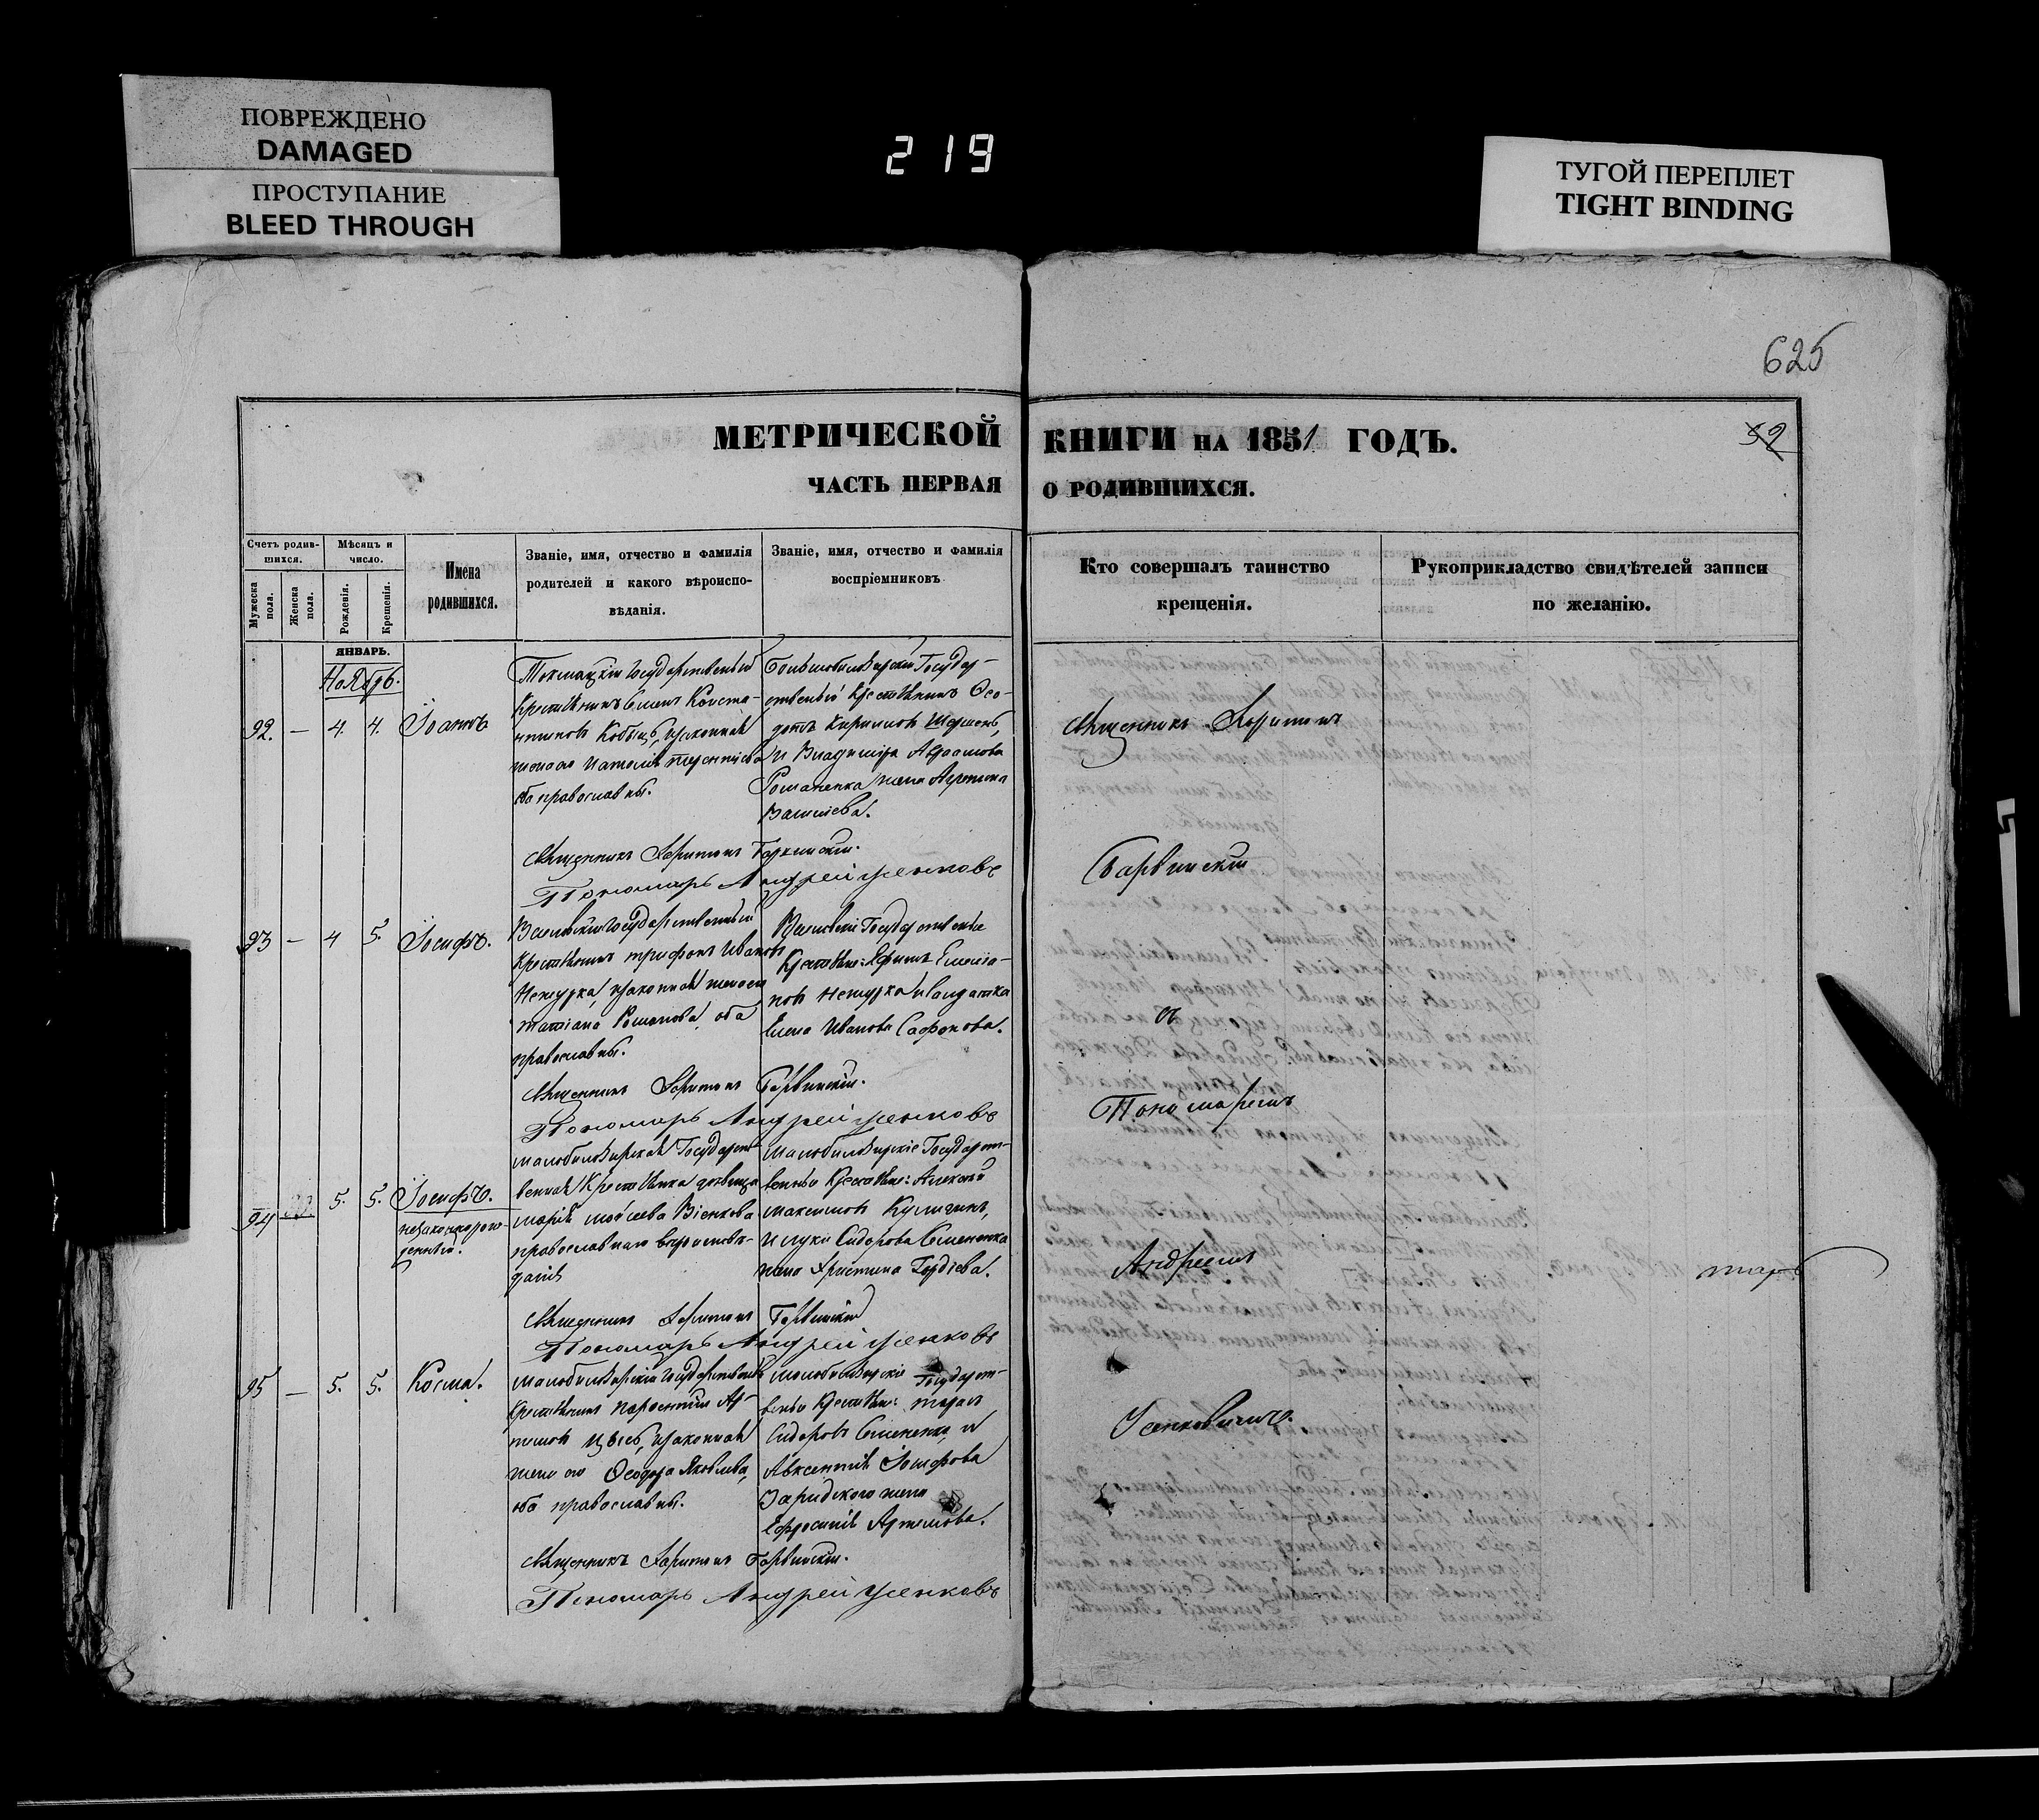 ПОВРЕЖДЕНО
DAMAGED
ПРОСТУПАНИЕ
BLEED THROUGH
219
ТУГОЙ ПЕРЕПЛЕТ
TIGHT BINDING
625
МЕТРИЧЕСКОЙ КНИГИ НА 1851 ГОДЪ.
52
ЧАСТЬ ПЕРВАЯ О РОДИВШИХСЯ.
Счетъ родив-
шихся.
Мужеска
пола.
Женска
пола.
Мѣсяцъ и
число.
Рожденія.
Крещенія.
Имена
родившихся.
Званіе, имя, отчество и фамилія
родителей и какого вѣроиспо-
вѣданія.
Званіе, имя, отчество и фамилія
воспріемниковъ
Кто совершалъ таинство
крещенія.
Рукоприкладство свидѣтелей записи
по желанію.
ЯНВАРЬ.
Ноябрь.
92. — 4. 4. Іоаннъ
Токмацкій Государственный
Крестьянинъ Семенъ Конста-
нтиновъ Кобецъ, и законная
жена его Наталія Терентіева
оба православны.
Большобилозирскій Государ-
ственный Крестьянинъ Ѳео-
дотъ Кирилловъ
и Владиміра Авраамова
Романенка жена
Васильева.
Священникъ Харитонъ Барвинскій.
Пономарь Андрей Усенковъ
93 — 4 5. Іосифъ.
Государственный
Крестьянинъ Трифонъ Ивановъ
Нежурка, и законная жена его
Татіана Романова, оба
православны.
Государственные
Крестьяне: Ефимъ Емелья-
новъ Нежурка и Солдатка
Елена Иванова Сафонова.
Священникъ Харитонъ Барвинскій.
Пономарь Андрей Усенковъ
94 5. 5. Іосифъ.
незаконнорож-
денный.
Малобилозирская Государст-
венная Крестьянка дѣвица
Марія Моисеева
православнаго вѣроисповѣ-
данія
Малобилозирскіе Государст-
венные Крестьяне: Алексѣй
Максимовъ Кулигинъ,
и Луки Сидорова Семененка
жена Христина Гордіева.
Священникъ Харитонъ Барвинскій
Пономарь Андрей Усенковъ
95 — 5. 5. Косма.
Малобилозирскій Государственный
Крестьянинъ Пареентій Ар-
темовъ и законная
жена его Ѳеодора Яковлева,
оба православны.
Малобилозирскіе Государст-
венные Крестьяне: Тарасъ
Сидоровъ Семененко, и
Авксентія Іосифова
жена
Ефросинія Артемова.
Священникъ Харитонъ Барвинскій.
Пономарь Андрей Усенковъ
Священникъ Харитонъ
Барвинскій
съ
Пономаремъ
Андреемъ
Усенковымъ.